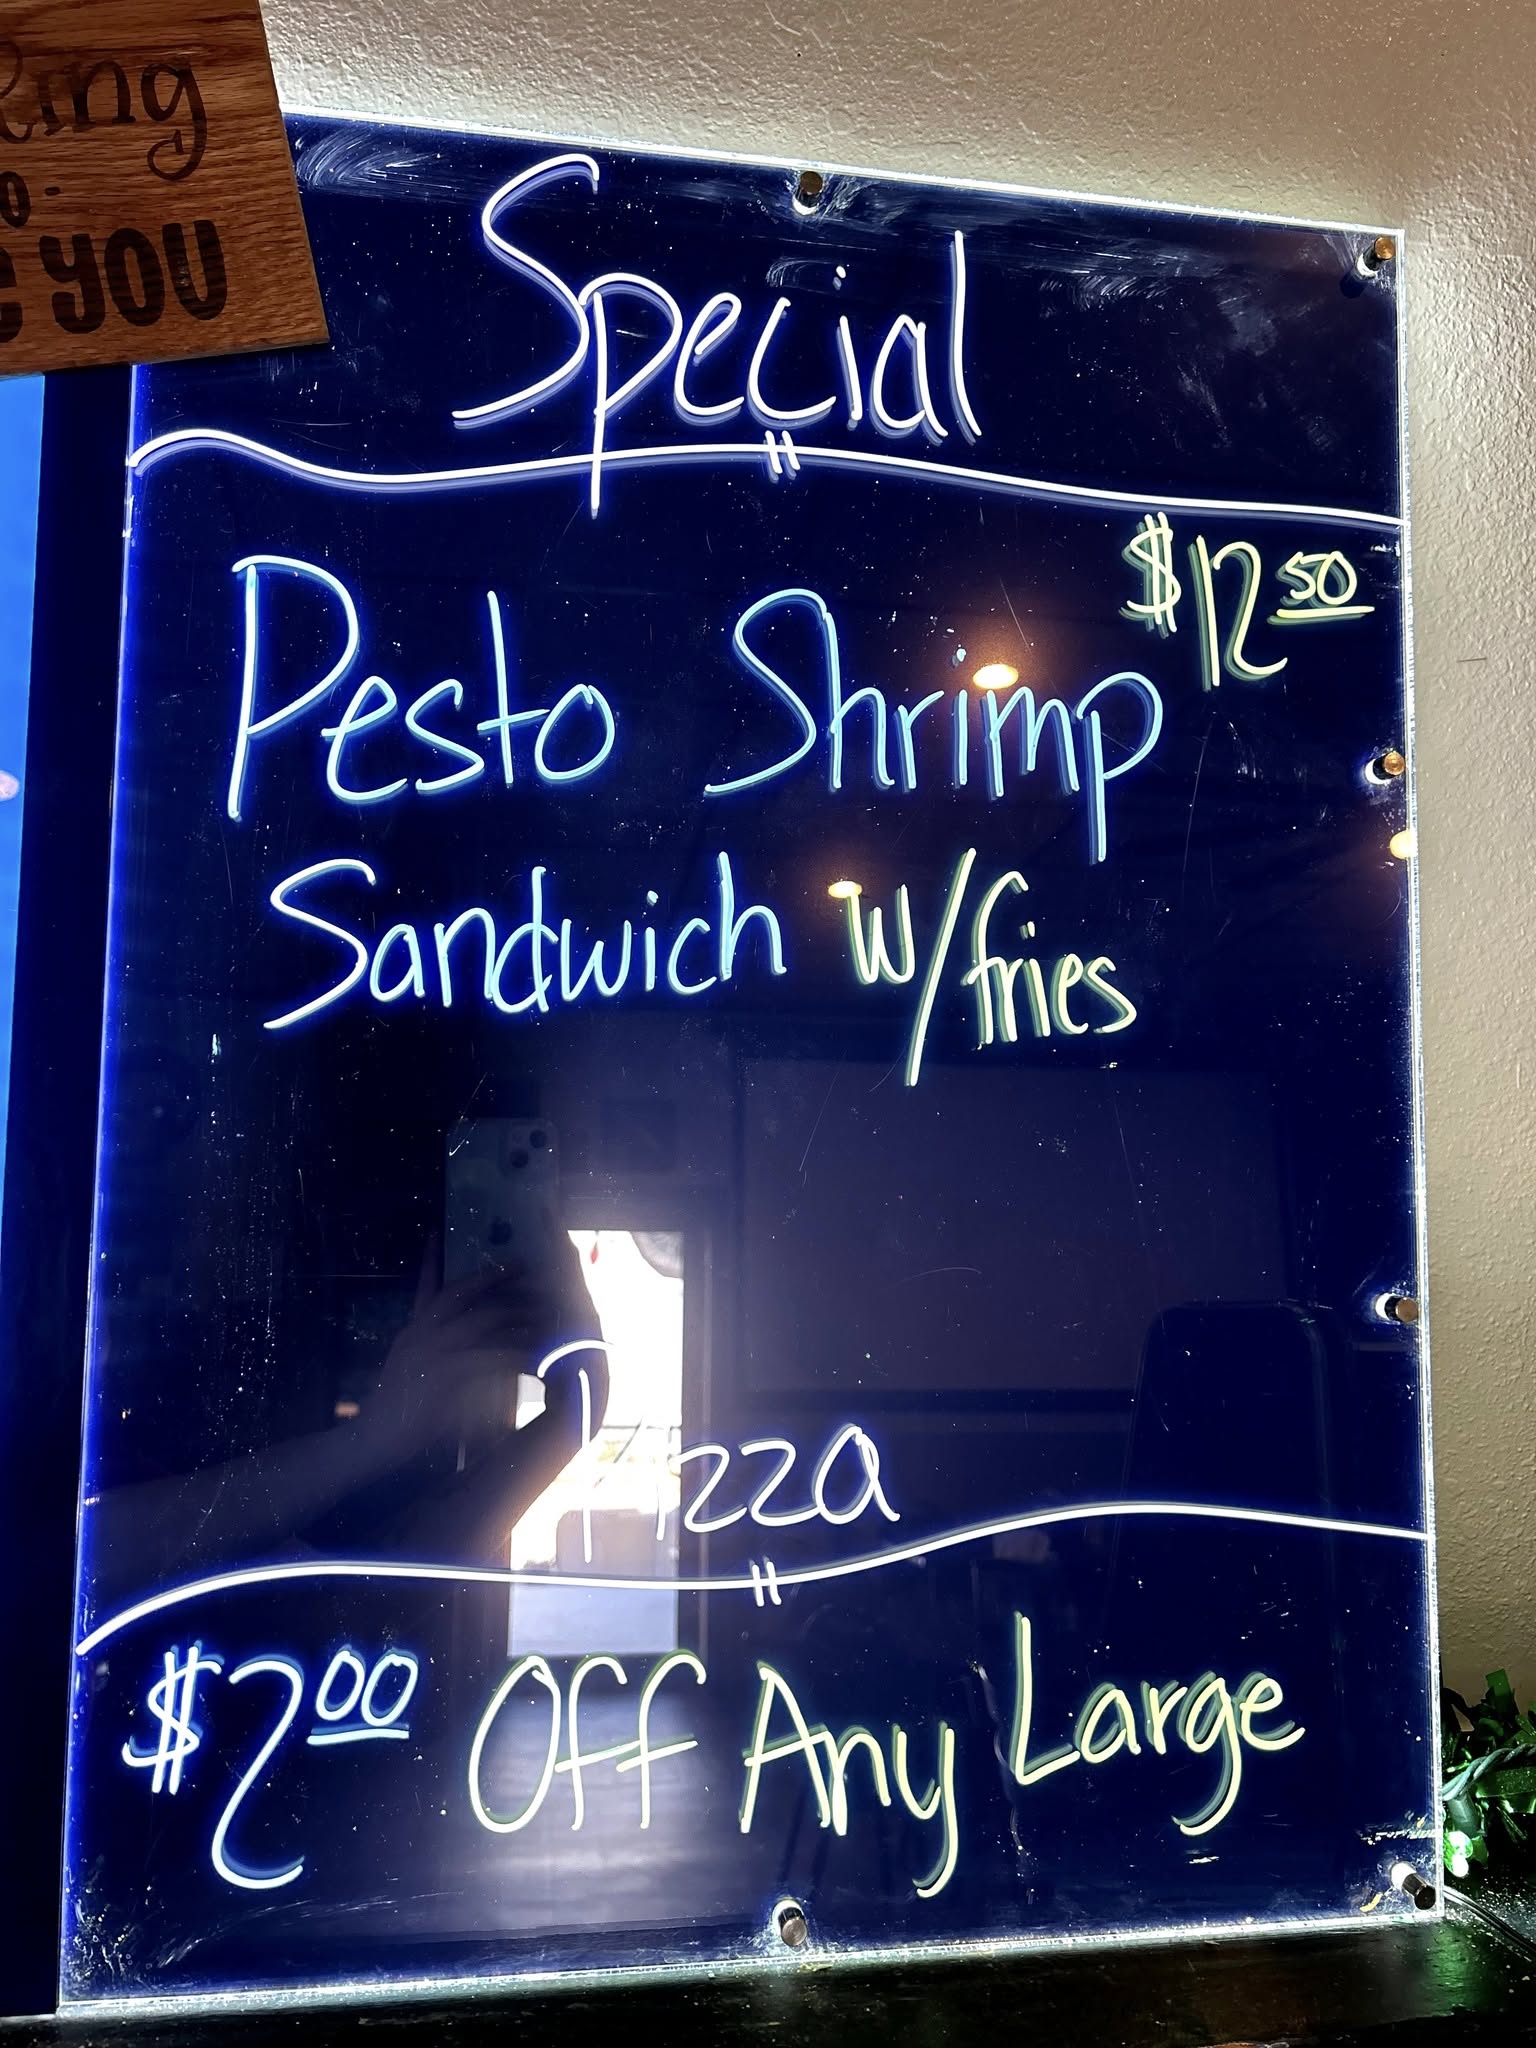 Ring
YOU
Special
$12.50
Pesto Shrimp
Sandwich w/fries
Pizza
$2.00 Off Any Large